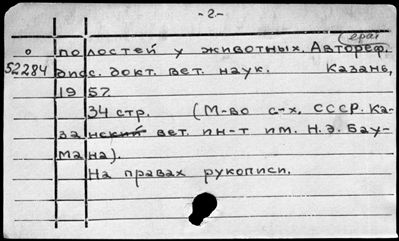 -2-
ераг
о полостей у животных. Автореф.
52284 дисс. докт. вет. наук. Казань,
1957.
34 стр. (М-во с-х. СССР. Ка-
занский вет. ин-т им. Н.Э. Бау-
мана).
На правах рукописи.